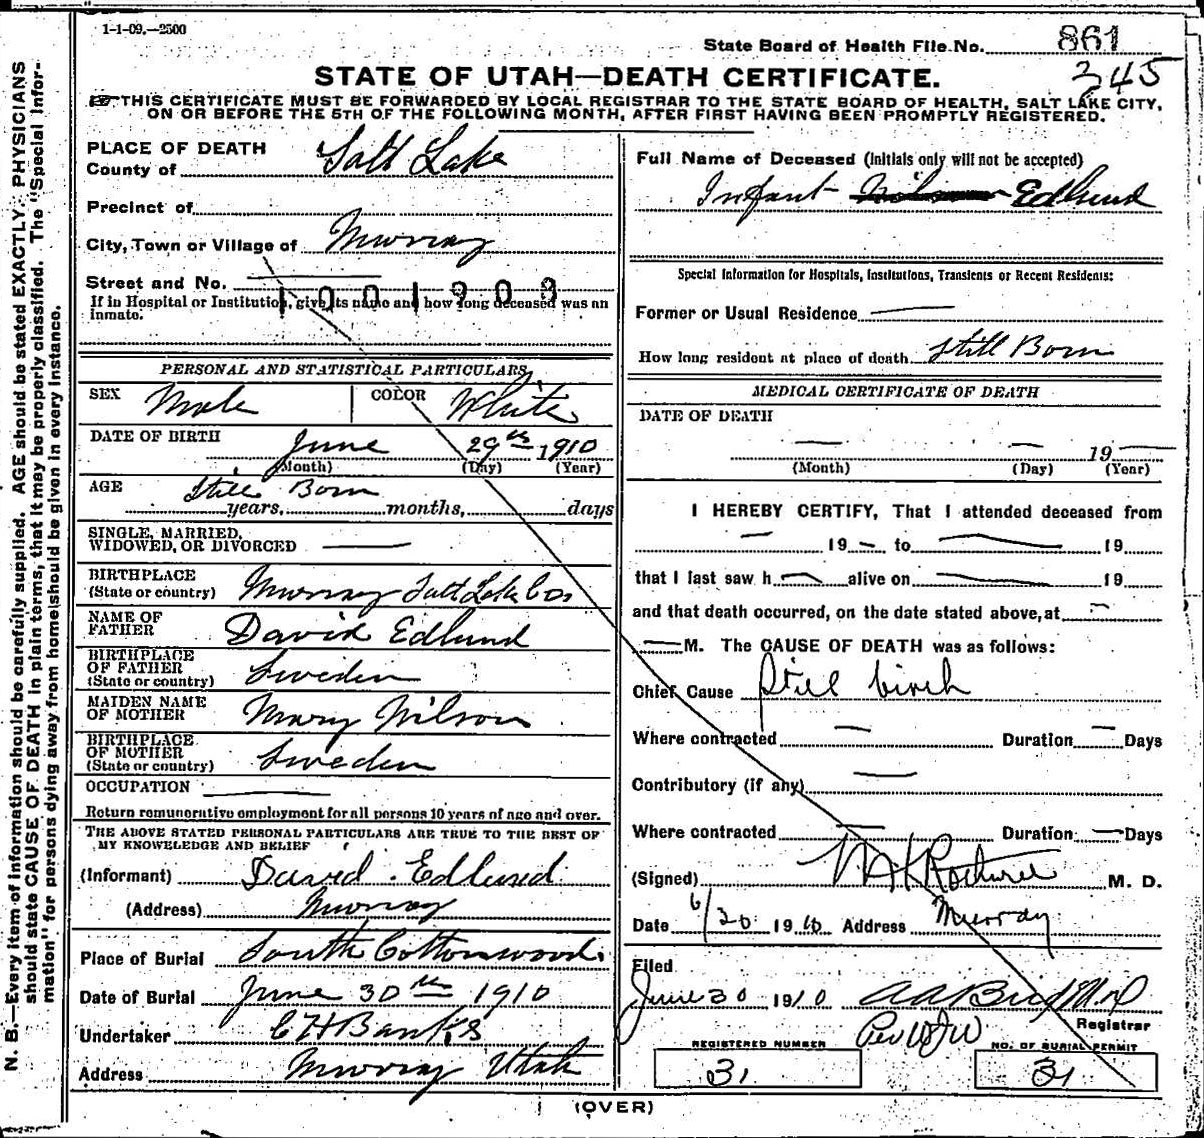 1-1-09.—2500
State Board of Health File No. 861
345
STATE OF UTAH—DEATH CERTIFICATE.
THIS CERTIFICATE MUST BE FORWARDED BY LOCAL REGISTRAR TO THE STATE BOARD OF HEALTH, SALT LAKE CITY,
ON OR BEFORE THE 5TH OF THE FOLLOWING MONTH, AFTER FIRST HAVING BEEN PROMPTLY REGISTERED.
N. B.—Every item of information should be carefully supplied. AGE should be stated EXACTLY. PHYSICIANS
should state CAUSE OF DEATH in plain terms, that it may be properly classified. The "Special Infor-
mation" for persons dying away from home should be given in every instance.
PLACE OF DEATH
County of Salt Lake
Precinct of
City, Town or Village of Murray
Street and No.
1001903
If in Hospital or Institution, give its name and how long deceased was an
inmate.
PERSONAL AND STATISTICAL PARTICULARS
SEX Male COLOR White
DATE OF BIRTH June 29th 1910
(Month) (Day) (Year)
AGE Still Born
years, months, days
SINGLE, MARRIED,
WIDOWED, OR DIVORCED —
BIRTHPLACE
(State or country) Murray Salt Lake Co.
NAME OF
FATHER David Edlund
BIRTHPLACE
OF FATHER
(State or country) Sweden
MAIDEN NAME
OF MOTHER Mary Nilson
BIRTHPLACE
OF MOTHER
(State or country) Sweden
OCCUPATION —
Return remunerative employment for all persons 10 years of age and over.
THE ABOVE STATED PERSONAL PARTICULARS ARE TRUE TO THE BEST OF
MY KNOWLEDGE AND BELIEF
(Informant) David Edlund
(Address) Murray
Place of Burial South Cottonwood.
Date of Burial June 30th 1910
Undertaker C H Banks
Address Murray Utah
Full Name of Deceased (Initials only will not be accepted)
Infant Edlund
Special Information for Hospitals, Institutions, Transients or Recent Residents:
Former or Usual Residence —
How long resident at place of death Still Born
MEDICAL CERTIFICATE OF DEATH
DATE OF DEATH
— — 19 —
(Month) (Day) (Year)
I HEREBY CERTIFY, That I attended deceased from
— 19 — to — 19
that I last saw h — alive on — 19
and that death occurred, on the date stated above, at —
— M. The CAUSE OF DEATH was as follows:
Chief Cause Still birth
Where contracted — Duration — Days
Contributory (if any) —
Where contracted — Duration — Days
(Signed) M. D.
Date 6/30 1910 Address Murray
Filed
June 30 1910 MD
Registrar
REGISTERED NUMBER NO. OF BURIAL PERMIT
31 31
(OVER)